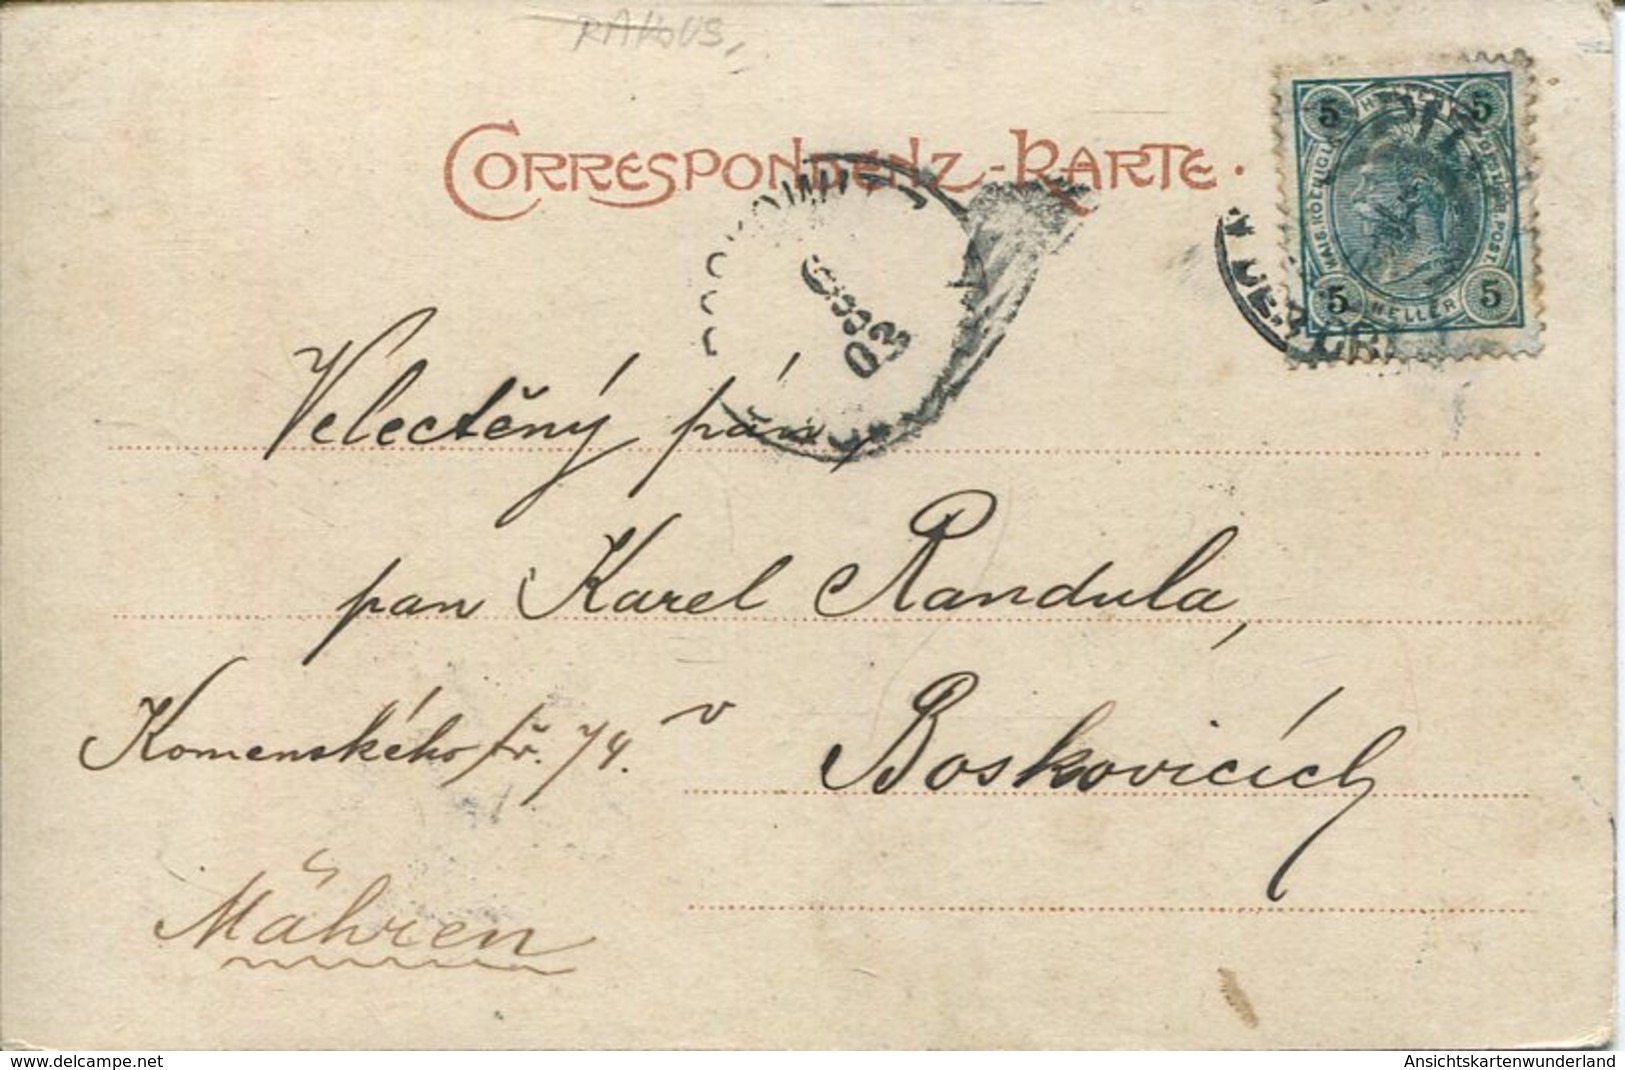 RAKOUS,
CORRESPONDENZ-KARTE.
5 HELLER 5
KAIS. KÖNIGL. OESTERR. POST
5 HELLER 5
03
Velectěný pán,
pan Karel Randula,
Komenského tř. 74. v Boskovicích
Mähren
www.delcampe.net
Ansichtskartenwunderland